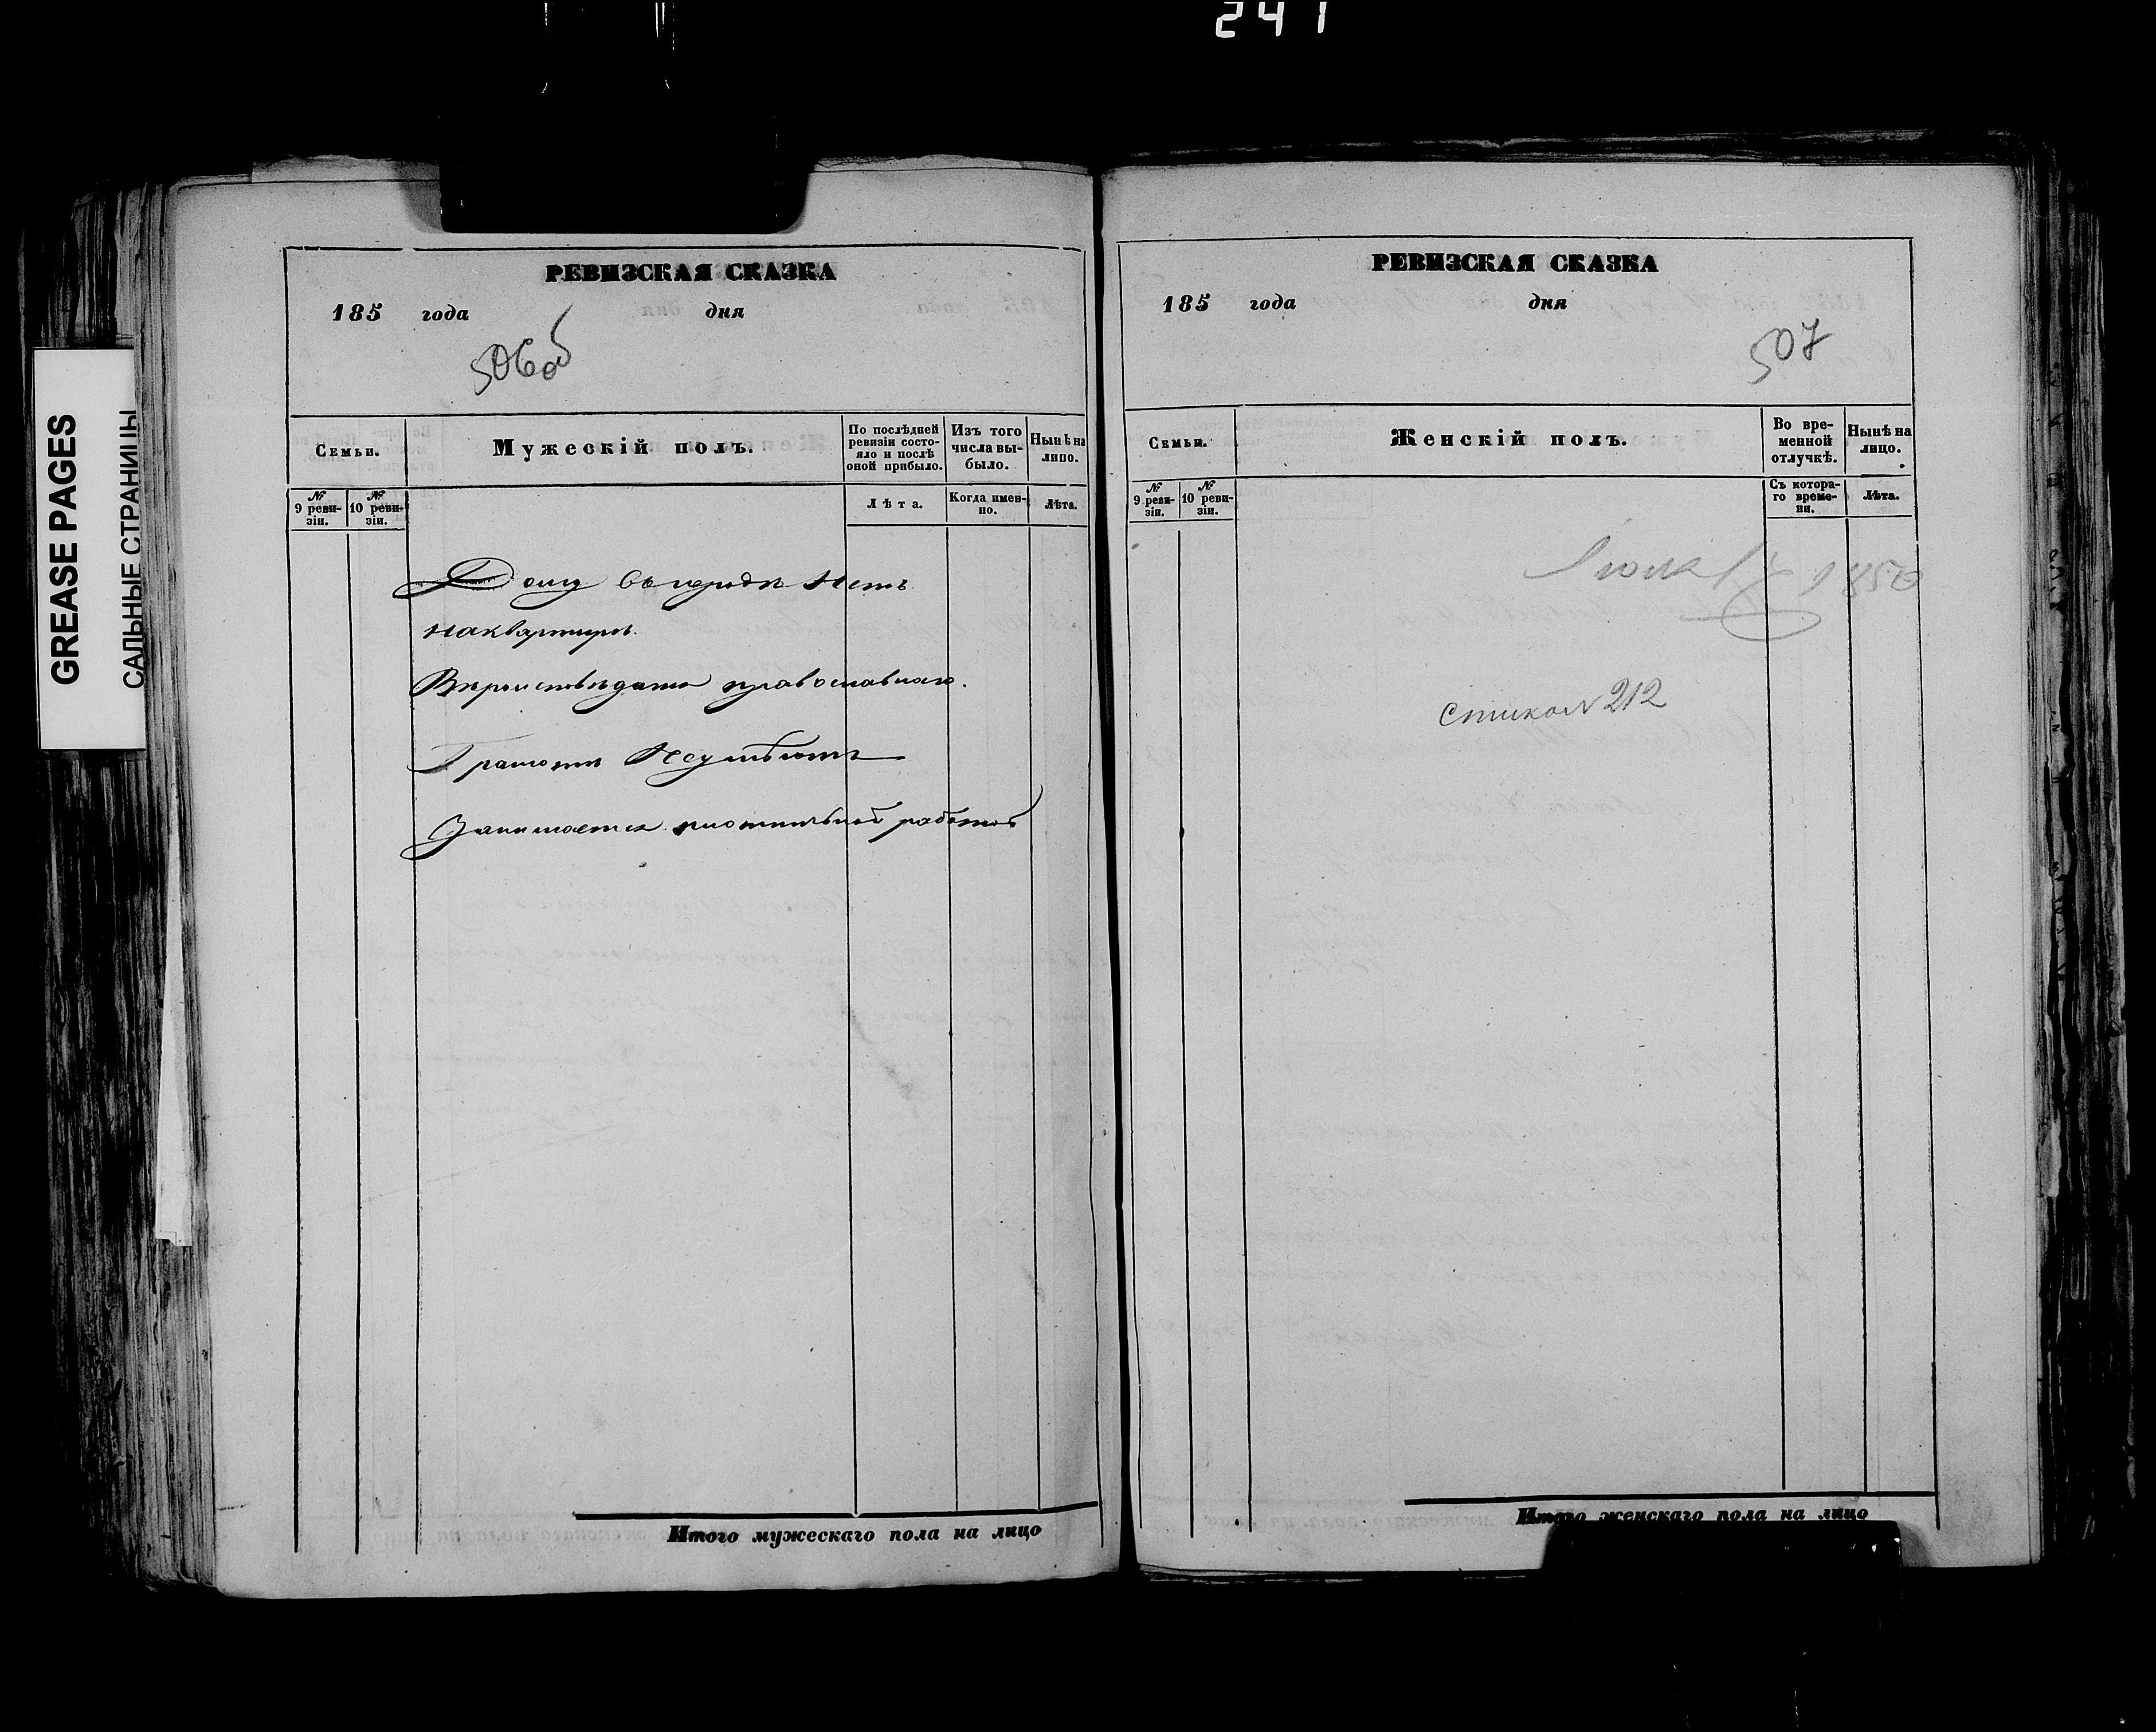 241
GREASE PAGES
САЛЬНЫЕ СТРАНИЦЫ
РЕВИЗСКАЯ СКАЗКА
185 года дня
506об
Семьи.
Мужескій полъ.
По послѣдней ревизіи состояло и послѣ оной прибыло.
Изъ того числа выбыло.
Нынѣ на лицо.
№ 9 ревизіи.
№ 10 ревизіи.
Лѣта.
Когда именно.
Лѣта.
Дому въ городѣ нетъ
наквартирѣ.
Вѣроисповѣданія православнаго.
Грамотѣ Неумѣютъ
Занимается работой
Итого мужескаго пола на лицо
РЕВИЗСКАЯ СКАЗКА
185 года дня
507
Семьи.
Женскій полъ.
Во временной отлучкѣ.
Нынѣ на лицо.
№ 9 ревизіи.
№ 10 ревизіи.
Съ котораго времени.
Лѣта.
Іюля 1850
212
Итого женскаго пола на лицо